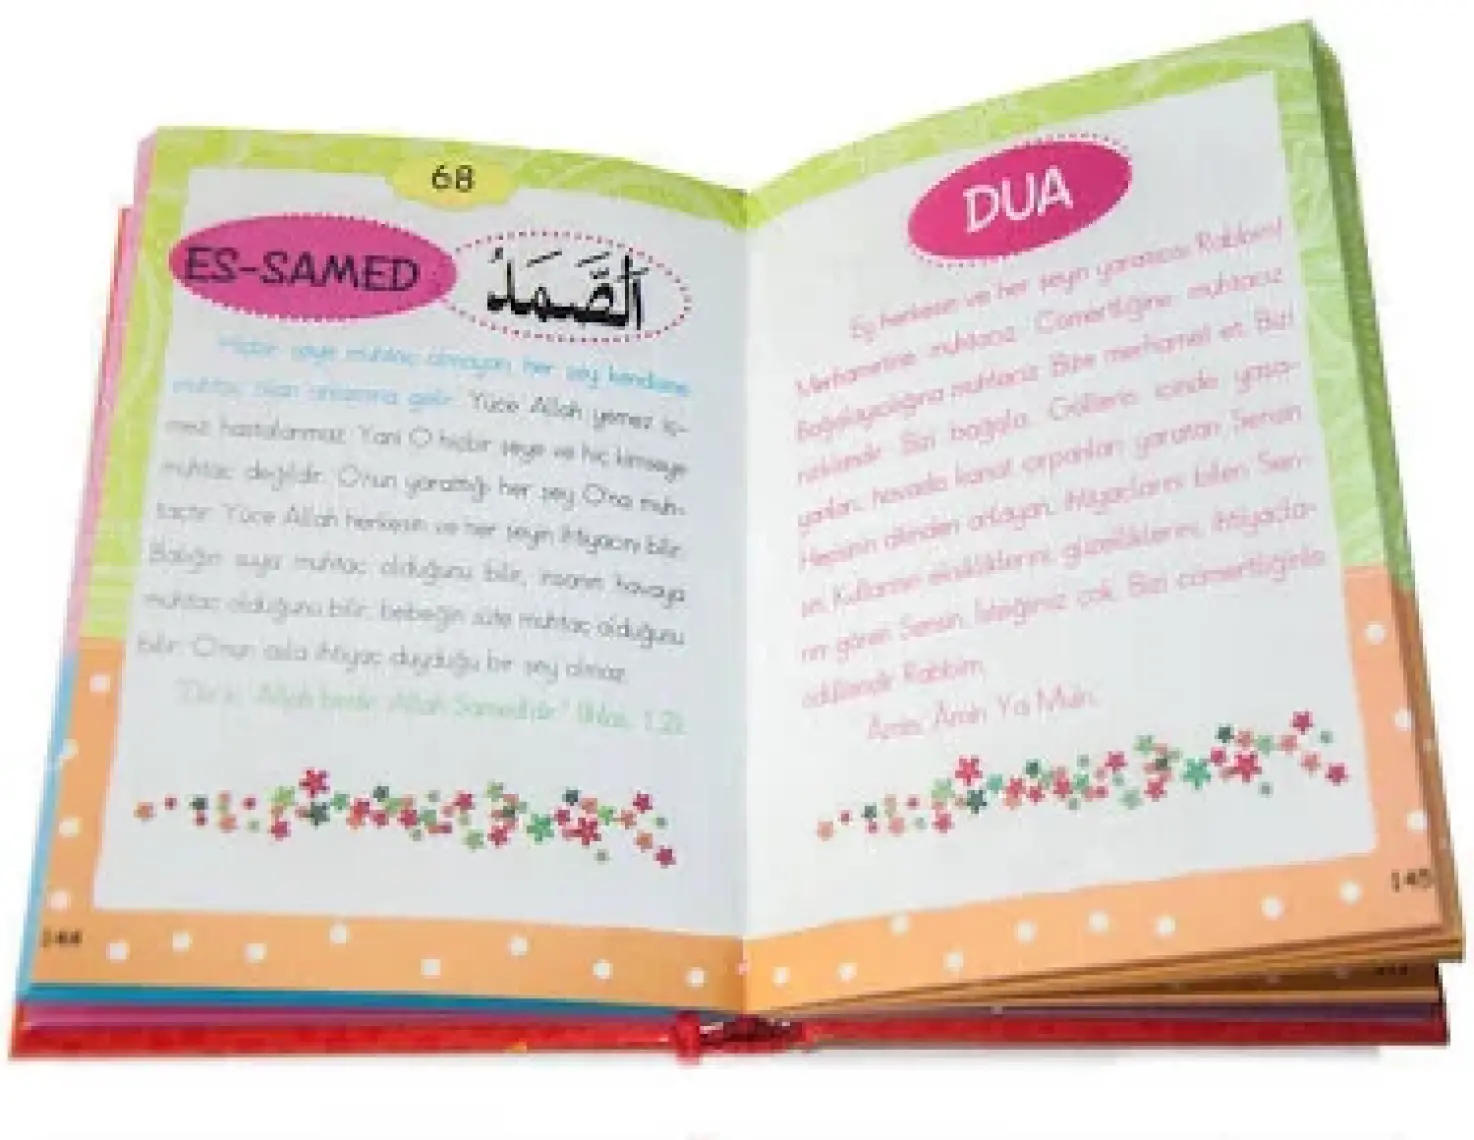 68
ES-SAMED
اَلصَّمَدُ
Hiçbir şeye muhtaç olmayan, her şey kendisine
muhtaç olan anlamına gelir. Yüce Allah yemez, iç-
mez, hastalanmaz. Yani O hiçbir şeye ve hiç kimseye
muhtaç değildir. O'nun yarattığı her şey O'na muh-
taçtır. Yüce Allah herkesin ve her şeyin ihtiyacını bilir.
Balığın suya muhtaç olduğunu bilir, insanın havaya
muhtaç olduğunu bilir, bebeğin süte muhtaç olduğunu
bilir. O'nun asla ihtiyaç duyduğu bir şey olmaz.
"De ki: Allah birdir. Allah Samed'dir." (İhlas, 1,2)
144
DUA
Ey herkesin ve her şeyin yaratıcısı Rabbim!
Merhametine muhtacız. Cömertliğine muhtacız.
Bağışlayıcılığına muhtacız. Bize merhamet et. Bizi
rızıklandır. Bizi bağışla. Göllerin içinde yaşa-
yanları, havada kanat çırpanları yaratan Sensin.
Hepsinin dilinden anlayan, ihtiyaçlarını bilen Sen-
sin. Kullarının eksikliklerini, güzelliklerini, ihtiyaçla-
rını gören Sensin. İsteğimiz çok. Bizi cömertliğinle
ödüllendir Rabbim.
Âmin, Âmin Ya Muin.
145